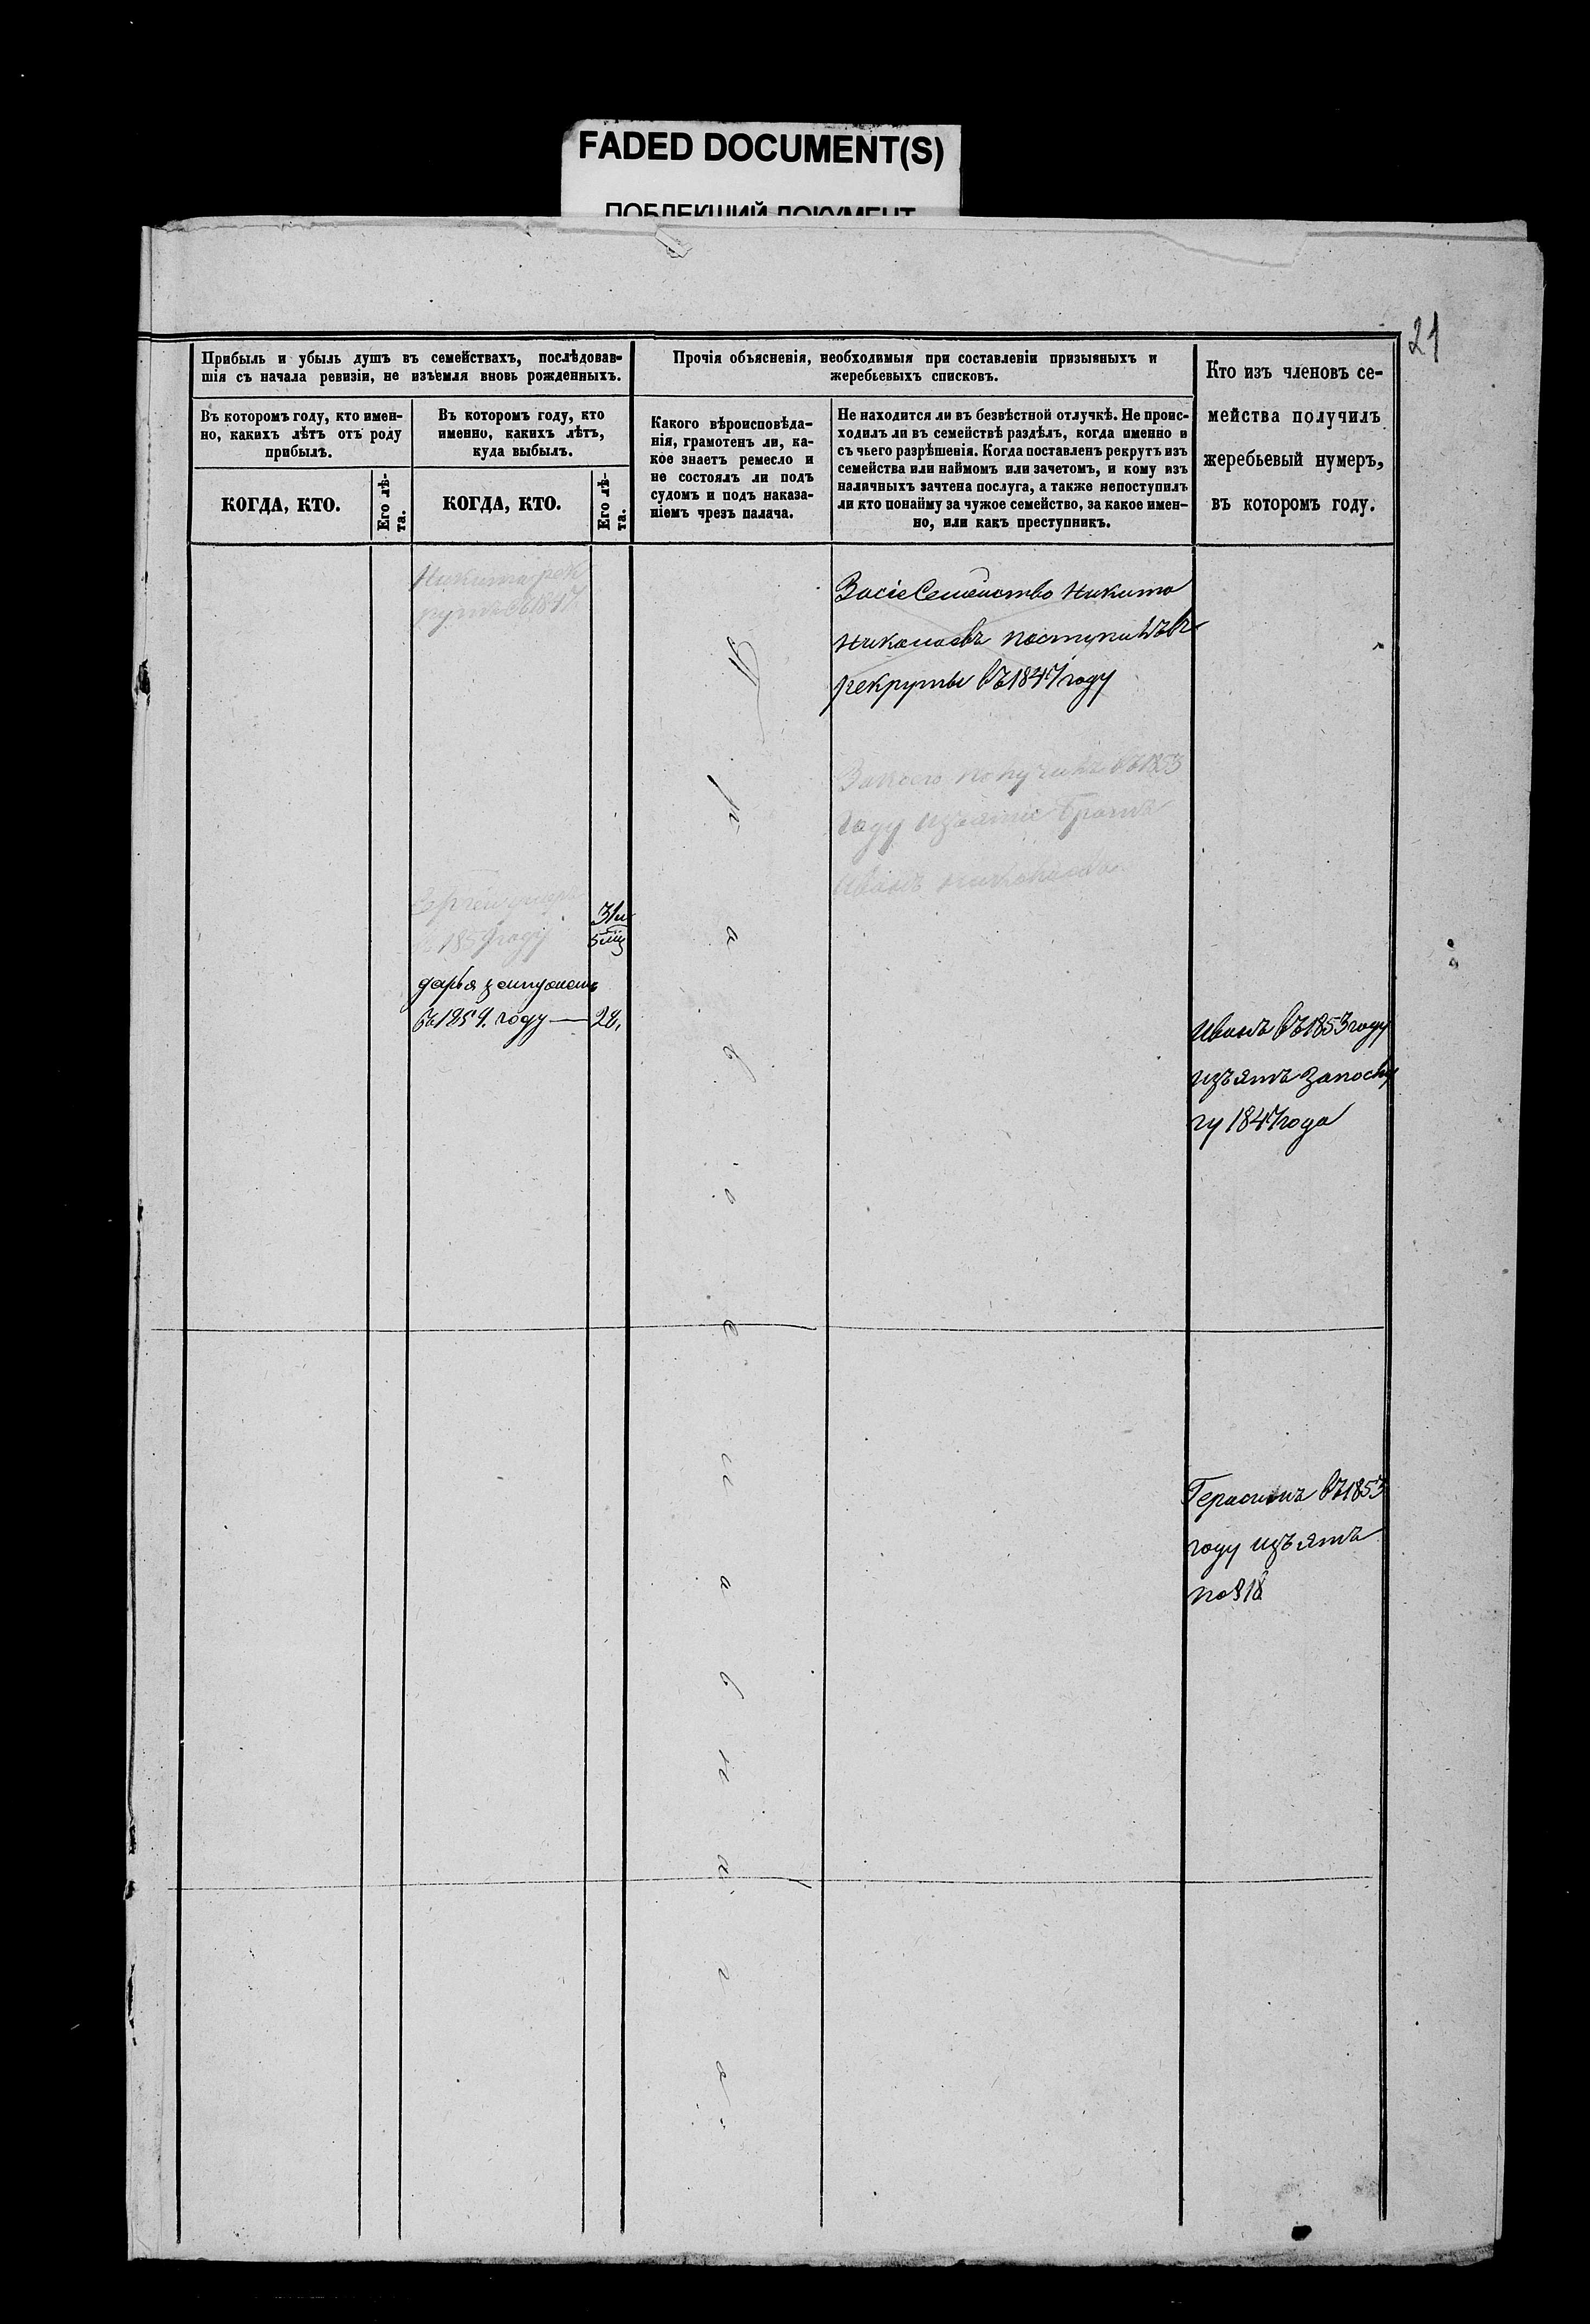 FADED DOCUMENT(S)
ПОБЛЕКШИЙ ДОКУМЕНТ
21
Прибыль и убыль душъ въ семействахъ, послѣдовав-
шія съ начала ревизіи, не изъемля вновь рожденныхъ.
Въ которомъ году, кто имен-
но, какихъ лѣтъ отъ роду
прибылъ.
КОГДА, КТО.
Его лѣ-
та.
Въ которомъ году, кто
именно, какихъ лѣтъ,
куда выбылъ.
КОГДА, КТО.
Его лѣ-
та.
Прочія объясненія, необходимыя при составленіи призывныхъ и
жеребьевыхъ списковъ.
Какого вѣроисповѣда-
нія, грамотенъ ли, ка-
кое знаетъ ремесло и
не состоялъ ли подъ
судомъ и подъ наказа-
ніемъ чрезъ палача.
Не находится ли въ безвѣстной отлучкѣ. Не проис-
ходилъ ли въ семействѣ раздѣлъ, когда именно и
съ чьего разрѣшенія. Когда поставленъ рекрутъ изъ
семейства или наймомъ или зачетомъ, и кому изъ
наличныхъ зачтена послуга, а также непоступилъ
ли кто понайму за чужое семейство, за какое имен-
но, или какъ преступникъ.
Кто изъ членовъ се-
мейства получилъ
жеребьевый нумеръ,
въ которомъ году.
Никита рек
рутъ въ 1847
31 и
5 мц
дарья
въ 1859. году — 28,
Православнаго
Засіе Семейство Никита
Николаевъ поступилъ въ
рекруты въ 1847 году
получилъ въ 1853
году изъятіе братъ
Иванъ Николаевъ
Иванъ въ 1853 году
изъятъ запослу
гу 1847 года
Герасимъ въ 1853
году изъятъ
по § 18